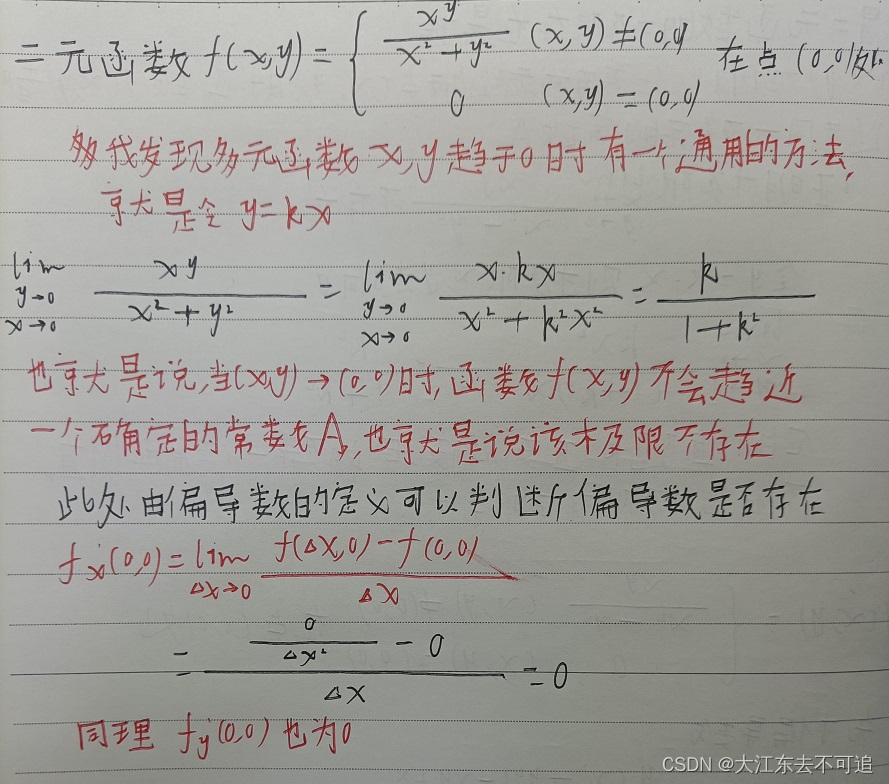 二元函数 f(x,y) = { xy / (x² + y²) (x,y) ≠ (0,0) 在点 (0,0)处
0 (x,y) = (0,0)
我发现多元函数 x,y 趋于0时有一个通用的方法,
就是令 y = kx
lim y→0 x→0 xy / (x² + y²) = lim y→0 x→0 x·kx / (x² + k²x²) = k / (1+k²)
也就是说,当(x,y) → (0,0)时,函数 f(x,y) 不会趋近
一个确定的常数A,也就是说该极限不存在
此处由偏导数的定义可以判断偏导数是否存在
fx'(0,0) = lim Δx→0 (f(Δx,0) - f(0,0)) / Δx
= (0/Δx² - 0) / Δx = 0
同理 fy'(0,0) 也为0
CSDN @大江东去不可追